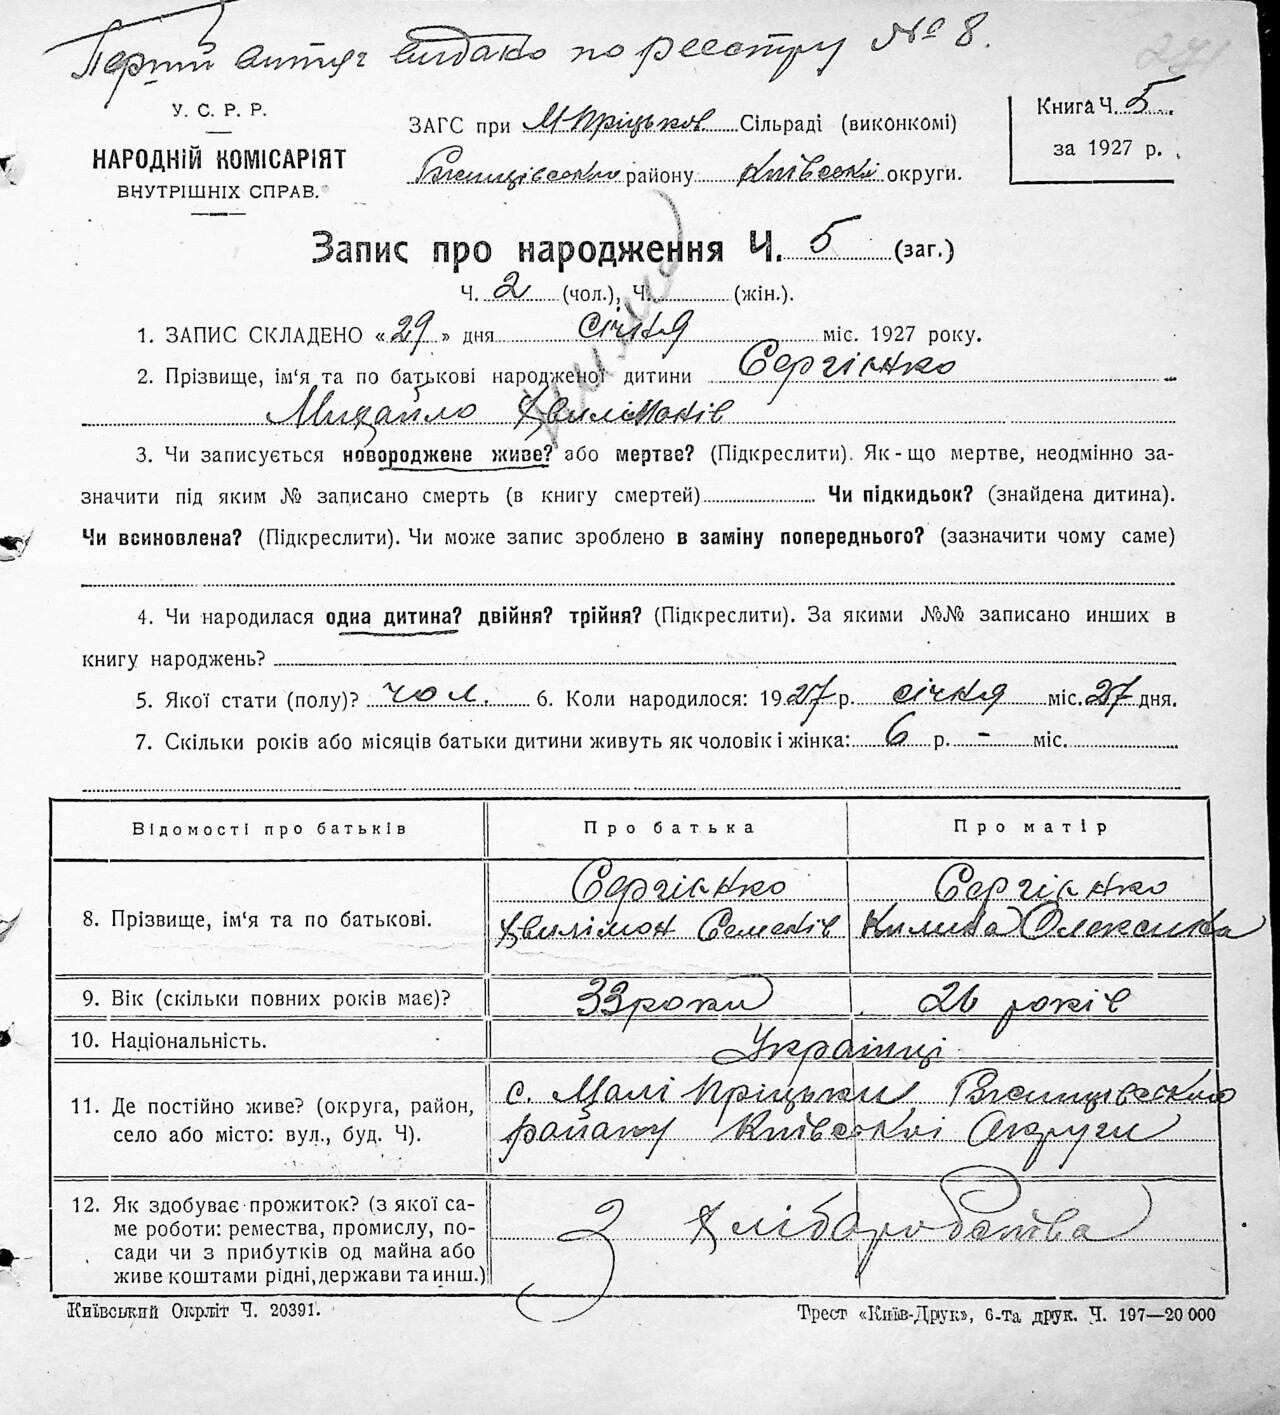 Перший витяг видано по реєстру № 8.
271
У. С. Р. Р.
НАРОДНІЙ КОМІСАРІЯТ
ВНУТРІШНІХ СПРАВ.
ЗАГС при М-Пріцьков Сільраді (виконкомі)
району Київської округи.
Книга Ч. 5
за 1927 р.
Запис про народження Ч. 5 (заг.)
Ч. 2 (чол.), Ч. (жін.).
1. ЗАПИС СКЛАДЕНО «29» дня січня міс. 1927 року.
2. Прізвище, ім'я та по батькові народженої дитини Сергієнко
Михайло Хвилімонів
3. Чи записується новороджене живе? або мертве? (Підкреслити). Як-що мертве, неодмінно за-
значити під яким № записано смерть (в книгу смертей) Чи підкидьок? (знайдена дитина).
Чи всиновлена? (Підкреслити). Чи може запис зроблено в заміну попереднього? (зазначити чому саме)
4. Чи народилася одна дитина? двійня? трійня? (Підкреслити). За якими №№ записано инших в
книгу народжень?
5. Якої стати (полу)? чол. 6. Коли народилося: 1927 р. січня міс. 27 дня.
7. Скільки років або місяців батьки дитини живуть як чоловік і жінка: 6 р. - міс.
Відомості про батьків Про батька Про матір
8. Прізвище, ім'я та по батькові. Сергієнко Сергієнко
Хвилімон Семенів Килина Олексієвна
9. Вік (скільки повних років має)? 33 роки 26 років
10. Національність. Українці
11. Де постійно живе? (округа, район,
село або місто: вул., буд. Ч).
с. Малі Пріцьки
району Київської Округи
12. Як здобуває прожиток? (з якої са-
ме роботи: ремества, промислу, по-
сади чи з прибутків од майна або
живе коштами рідні, держави та инш.)
З Хліборобства
Київський Окрліт Ч. 20391.
Трест «Київ-Друк», 6-та друк. Ч. 197—20 000